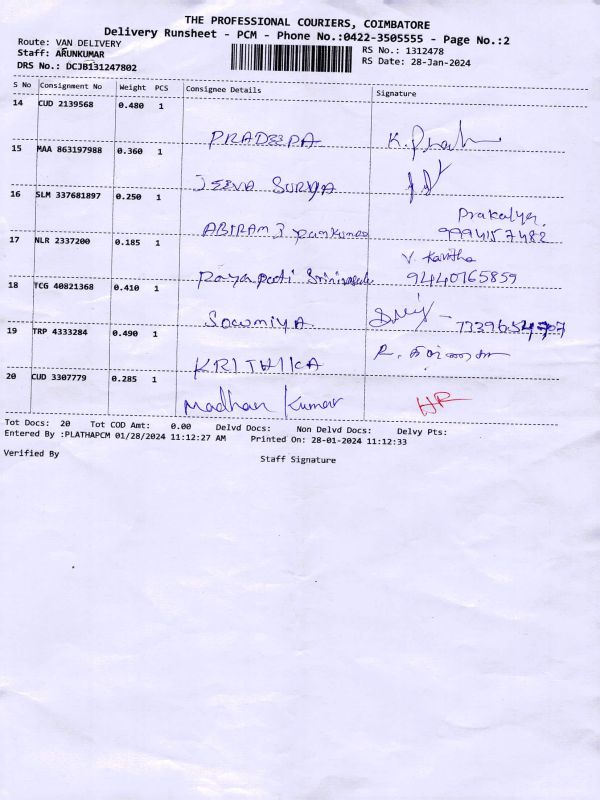 THE PROFESSIONAL COURIERS, COIMBATORE
Delivery Runsheet - PCM - Phone No.:0422-3505555 - Page No.:2
Route: VAN DELIVERY
RS No.: 1312478
Staff: ARUNKUMAR
RS Date: 28-Jan-2024
DRS No.: DCJB131247802
S No Consignment No Weight PCS Consignee Details Signature
14 CUD 2139568 0.480 1
PRADEEPA K.
15 MAA 863197988 0.360 1
JEEVA SURYA
16 SLM 337681897 0.250 1
ABIRAMI Prakalya
9994157482
17 NLR 2337200 0.185 1
V. Kavitha
Rayapati 9440765859
18 TCG 40821368 0.410 1
Sowmiya
19 TRP 4333284 0.490 1
KRITHIKA R.
20 CUD 3307779 0.285 1
Madhan Kumar HR
Tot Docs: 20 Tot COD Amt: 0.00 Delvd Docs: Non Delvd Docs: Delvy Pts:
Entered By :PLATHAPCM 01/28/2024 11:12:27 AM Printed On: 28-01-2024 11:12:33
Verified By
Staff Signature